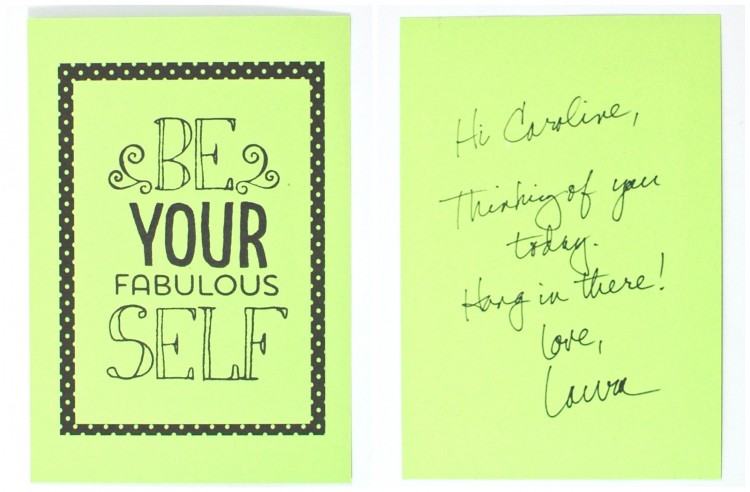 BE
YOUR
FABULOUS
SELF
Hi Caroline,
Thinking of you
today.
Hang in there!
Love,
Laura